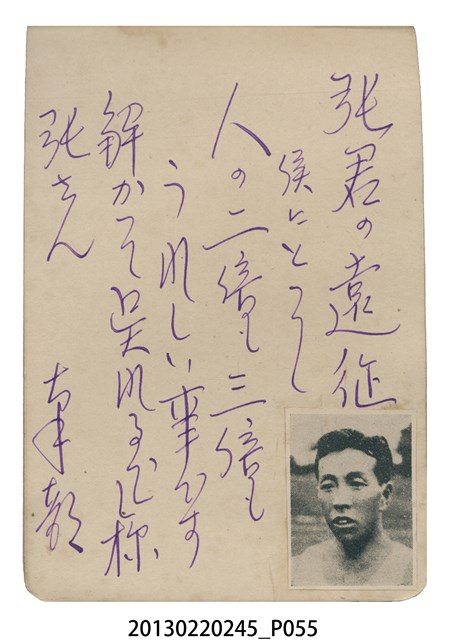 張君の遠征
僕にとつて
人の二倍も三倍も
うれしい事です
解かつて呉れるでしよ
張さん
20130220245_P055